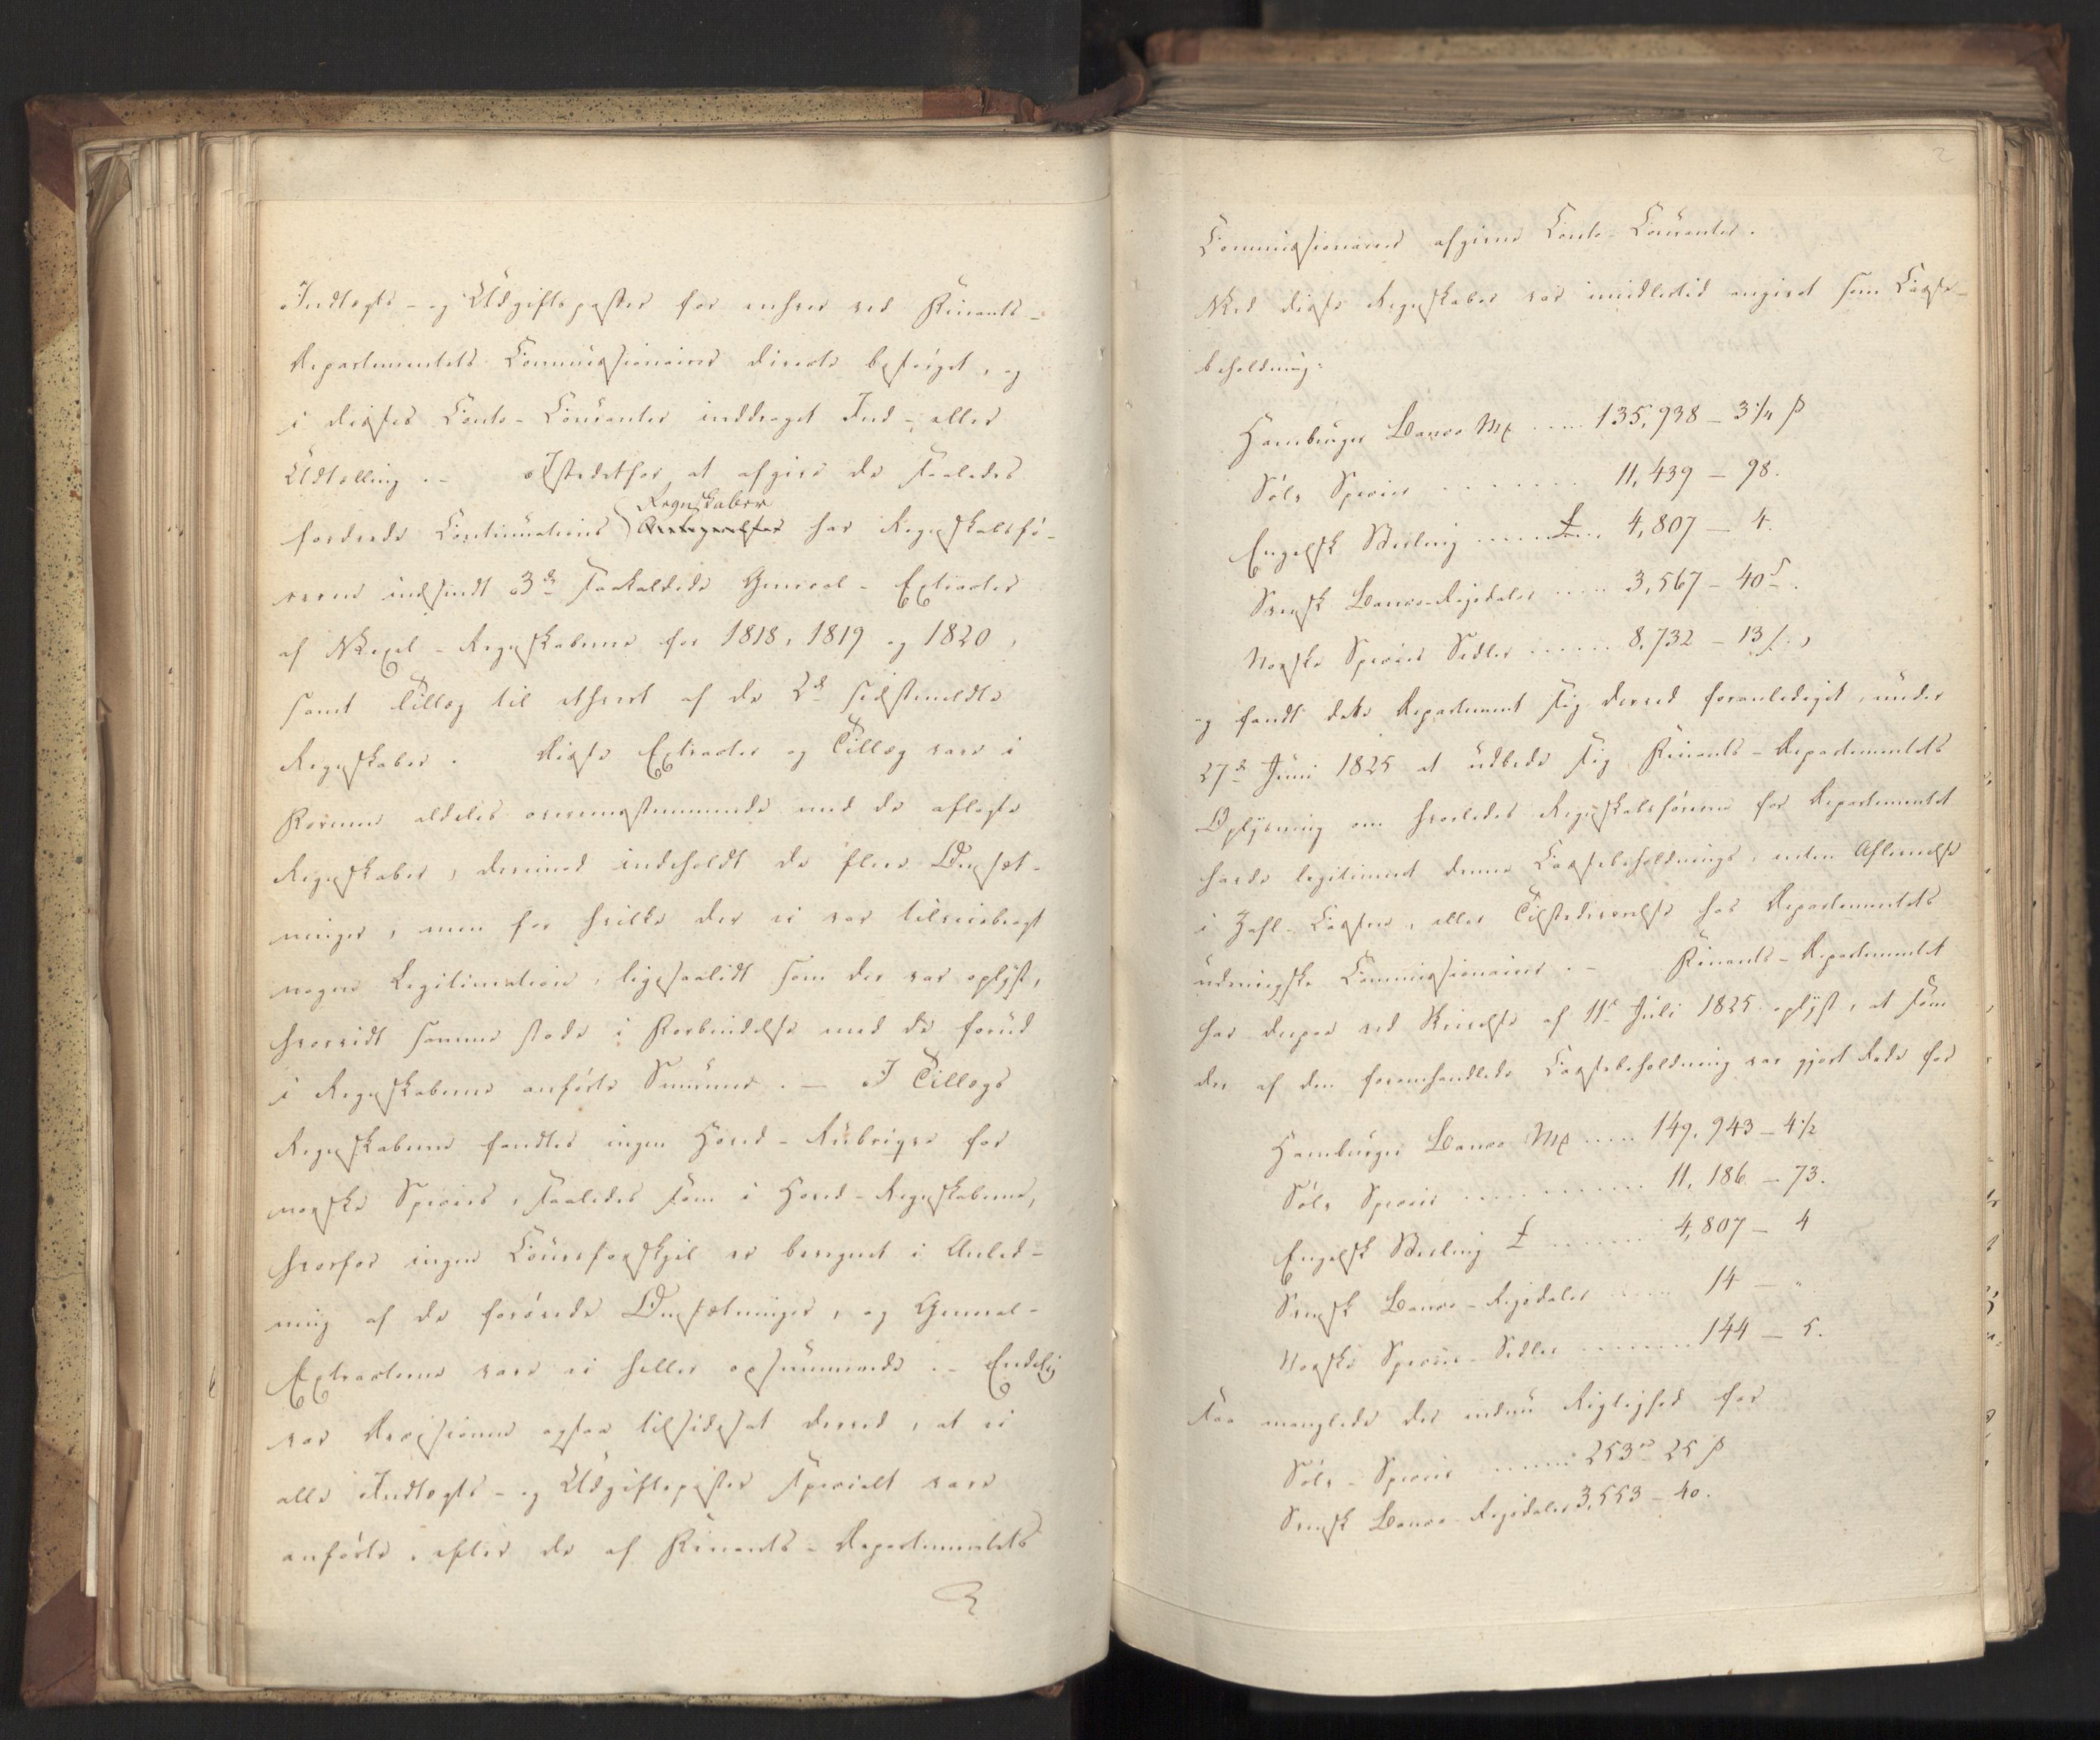 Indtægts- og Udgiftsposter for enhver ved Finants-
Departementets Commissionairer directe besørget, og
i disses Conto-Couranter inddraget Ind- eller
Udtælling. – Istedetfor at afgive de saaledes
Regnskaber
fordrede Continuations har Regnskabsfø-
reren indsendt 3de saakaldede General-Extracter
af Vexel-Regnskaberne for 1818, 1819 og 1820,
samt Tillæg til ethvert af de 2de sidstmeldte
Regnskaber. Disse Extracter og Tillæg vare i
Formen aldeles overensstemmende med de aflagte
Regnskaber, derimod indeholdt de flere Omsæt-
ninger, men for hvilke der ei var tilveiebragt
nogen Legitimation, ligesaalidt som der var oplyst,
hvorvidt samme stode i Forbindelse med de forud
i Regnskaberne anførte Summer. – I Tillægs
Regnskaberne fandtes ingen Hoved-Rubriqve for
norske Species, saaledes som i Hoved-Regnskaberne,
hvorfor ingen Coursforskjel er beregnet i Anled-
ning af de forøvede Omsætninger, og General-
Extracterne vare ei heller opsummerede. – Endelig
var Decisionen ogsaa tilsidesat derved, at ei
alle Indtægts- og Udgiftsposter specielt vare
anførte, efter de af Finants-Departementets
2
Commissionairer afgivne Conto-Couranter.
Ved disse Regnskaber var imidlertid angivet som Casse-
beholdning:
Hamburger Banco Mk ..... 135,938 – 3 1/4 ß
Sølv Species ........ 11,439 – 98.
Engelsk Sterling ...... £ .. 4,807 – 4.
Svensk Banco-Rigsdaler ..... 3,567 – 40 s.
Norske Species Sedler ...... 8,732 – 13 ß.,
og fandt dette Departement sig derved foranlediget, under
27de Juni 1825 at udbede sig Finants-Departementets
Oplysning om hvorledes Regnskabsføreren for Departementet
havde legitimeret denne Cassebeholdnings, enten Aflevelse
i Zahl-Cassen, eller Tilstedeværelse hos Departementets
udenrigske Commissionairer. – Finants-Departementet
har derpaa ved Skrivelse af 11te Juli 1825 oplyst, at som
der af den foromhandlede Cassebeholdning var gjort Rede for
Hamburger Banco Mk ..... 149,943 – 4 1/2
Sølv Species ............ 11,186 – 73.
Engelsk Sterling £ ....... 4,807 – 4
Svensk Banco-Rigsdaler ..... 14 – "
Norske Species-Sedler ....... 144 – 5.
saa manglede der endnu Rigtighed for
Sølv-Species ...... 253 – 25 ß
Svensk Banco-Rigsdaler 3,553 – 40.